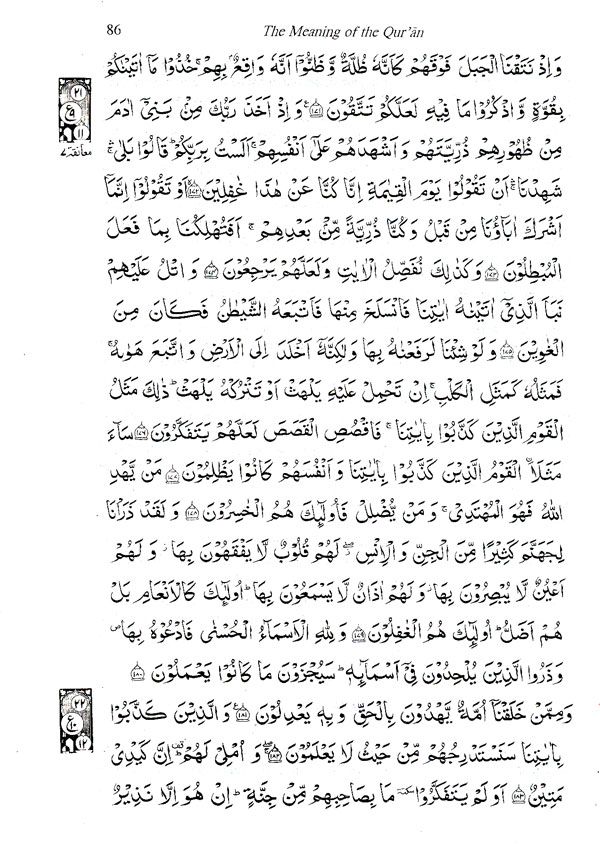 86
The Meaning of the Qur'ān
وَاِذْ نَتَقْنَا الْجَبَلَ فَوْقَهُمْ كَاَنَّهٗ ظُلَّةٌ وَّظَنُّوْۤا اَنَّهٗ وَاقِعٌۢ بِهِمْ ۚ خُذُوْا مَاۤ اٰتَيْنٰكُمْ
بِقُوَّةٍ وَّاذْكُرُوْا مَا فِيْهِ لَعَلَّكُمْ تَتَّقُوْنَ ﴿۱۷۱﴾ وَاِذْ اَخَذَ رَبُّكَ مِنْۢ بَنِيْۤ اٰدَمَ
مِنْ ظُهُوْرِهِمْ ذُرِّيَّتَهُمْ وَاَشْهَدَهُمْ عَلٰۤى اَنْفُسِهِمْ ۚ اَلَسْتُ بِرَبِّكُمْ ؕ قَالُوْا بَلٰى ۛۚ
شَهِدْنَا ۛۚ اَنْ تَقُوْلُوْا يَوْمَ الْقِيٰمَةِ اِنَّا كُنَّا عَنْ هٰذَا غٰفِلِيْنَ ﴿۱۷۲﴾ اَوْ تَقُوْلُوْۤا اِنَّمَاۤ
اَشْرَكَ اٰبَآؤُنَا مِنْ قَبْلُ وَكُنَّا ذُرِّيَّةً مِّنْۢ بَعْدِهِمْ ۚ اَفَتُهْلِكُنَا بِمَا فَعَلَ
الْمُبْطِلُوْنَ ﴿۱۷۳﴾ وَكَذٰلِكَ نُفَصِّلُ الْاٰيٰتِ وَلَعَلَّهُمْ يَرْجِعُوْنَ ﴿۱۷۴﴾ وَاتْلُ عَلَيْهِمْ
نَبَاَ الَّذِيْۤ اٰتَيْنٰهُ اٰيٰتِنَا فَانْسَلَخَ مِنْهَا فَاَتْبَعَهُ الشَّيْطٰنُ فَكَانَ مِنَ
الْغٰوِيْنَ ﴿۱۷۵﴾ وَلَوْ شِئْنَا لَرَفَعْنٰهُ بِهَا وَلٰكِنَّهٗۤ اَخْلَدَ اِلَى الْاَرْضِ وَاتَّبَعَ هَوٰىهُ ۚ
فَمَثَلُهٗ كَمَثَلِ الْكَلْبِ ۚ اِنْ تَحْمِلْ عَلَيْهِ يَلْهَثْ اَوْ تَتْرُكْهُ يَلْهَثْ ؕ ذٰلِكَ مَثَلُ
الْقَوْمِ الَّذِيْنَ كَذَّبُوْا بِاٰيٰتِنَا ۚ فَاقْصُصِ الْقَصَصَ لَعَلَّهُمْ يَتَفَكَّرُوْنَ ﴿۱۷۶﴾ سَآءَ
مَثَلَا ۨالْقَوْمُ الَّذِيْنَ كَذَّبُوْا بِاٰيٰتِنَا وَاَنْفُسَهُمْ كَانُوْا يَظْلِمُوْنَ ﴿۱۷۷﴾ مَنْ يَّهْدِ
اللّٰهُ فَهُوَ الْمُهْتَدِيْ ۚ وَمَنْ يُّضْلِلْ فَاُولٰٓئِكَ هُمُ الْخٰسِرُوْنَ ﴿۱۷۸﴾ وَلَقَدْ ذَرَاْنَا
لِجَهَنَّمَ كَثِيْرًا مِّنَ الْجِنِّ وَالْاِنْسِ ۖ لَهُمْ قُلُوْبٌ لَّا يَفْقَهُوْنَ بِهَا ؗ وَلَهُمْ
اَعْيُنٌ لَّا يُبْصِرُوْنَ بِهَا ؗ وَلَهُمْ اٰذَانٌ لَّا يَسْمَعُوْنَ بِهَا ؕ اُولٰٓئِكَ كَالْاَنْعَامِ بَلْ
هُمْ اَضَلُّ ؕ اُولٰٓئِكَ هُمُ الْغٰفِلُوْنَ ﴿۱۷۹﴾ وَلِلّٰهِ الْاَسْمَآءُ الْحُسْنٰى فَادْعُوْهُ بِهَا ۪
وَذَرُوا الَّذِيْنَ يُلْحِدُوْنَ فِيْۤ اَسْمَآئِهٖ ؕ سَيُجْزَوْنَ مَا كَانُوْا يَعْمَلُوْنَ ﴿۱۸۰﴾
وَمِمَّنْ خَلَقْنَاۤ اُمَّةٌ يَّهْدُوْنَ بِالْحَقِّ وَبِهٖ يَعْدِلُوْنَ ﴿۱۸۱﴾ وَالَّذِيْنَ كَذَّبُوْا
بِاٰيٰتِنَا سَنَسْتَدْرِجُهُمْ مِّنْ حَيْثُ لَا يَعْلَمُوْنَ ﴿۱۸۲﴾ وَاُمْلِيْ لَهُمْ ؕ اِنَّ كَيْدِيْ
مَتِيْنٌ ﴿۱۸۳﴾ اَوَلَمْ يَتَفَكَّرُوْا ٚ مَا بِصَاحِبِهِمْ مِّنْ جِنَّةٍ ؕ اِنْ هُوَ اِلَّا نَذِيْرٌ
۲۱
ع
۱۱
معانقة ۷
۲۲
ع ۱۰
۱۲